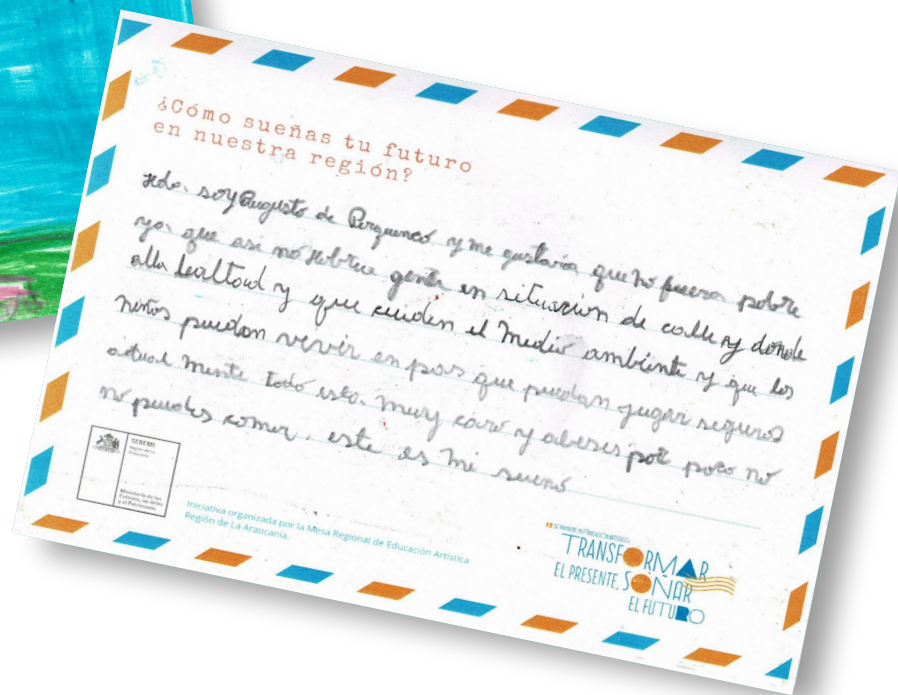 ¿Cómo sueñas tu futuro
en nuestra región?
Hola, soy Augusto de Perquenco y me gustaria que no fueran pobre
ya, que asi no habria gente en situacion de calle y donde
alla lealtad y que cuiden el Medio ambiente y que los
niños puedan vivir en pas que puedan jugar seguros
actual mente todo esta. muy caro y abeses por poco no
no puedes comer, este es mi sueño
SEREMI
Región de La
Araucanía
Ministerio de las
Culturas, las Artes
y el Patrimonio
Iniciativa organizada por la Mesa Regional de Educación Artística
Región de La Araucanía.
TRANSFORMAR
EL PRESENTE, SOÑAR
EL FUTURO